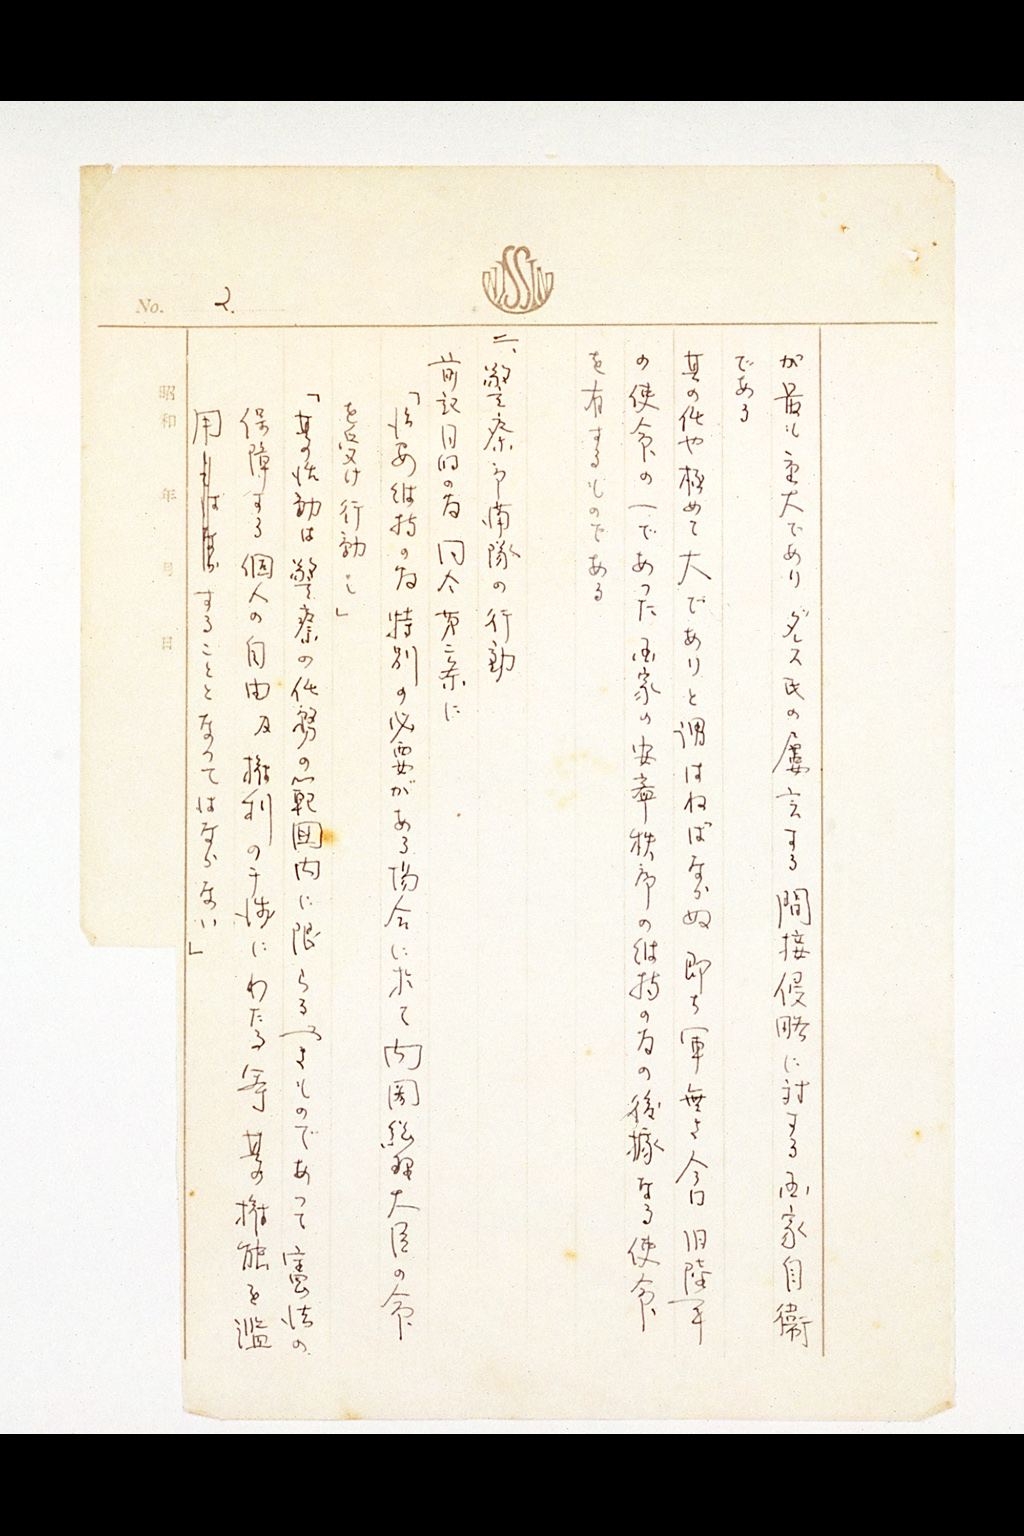 NISSIN
No. 2.
が最も重大でありダレス氏の屡言する間接侵略に対する国家自衛
である
其の任や極めて大でありと謂はねばならぬ 即ち軍無き今日旧陸軍
の使命の一であった国家の安寧秩序の維持の為の後拠なる使命
を有するものである
二、警察予備隊の行動
前記目的の為同令第三条に
「治安維持の為特別の必要がある場合に於て内閣総理大臣の命
を受け行動し」
「其の活動は警察の任務の範囲内に限らるべきものであって憲法の
保障する個人の自由及権利の干渉にわたる等其の権能を濫
用することとなってはならない」
昭和 年 月 日